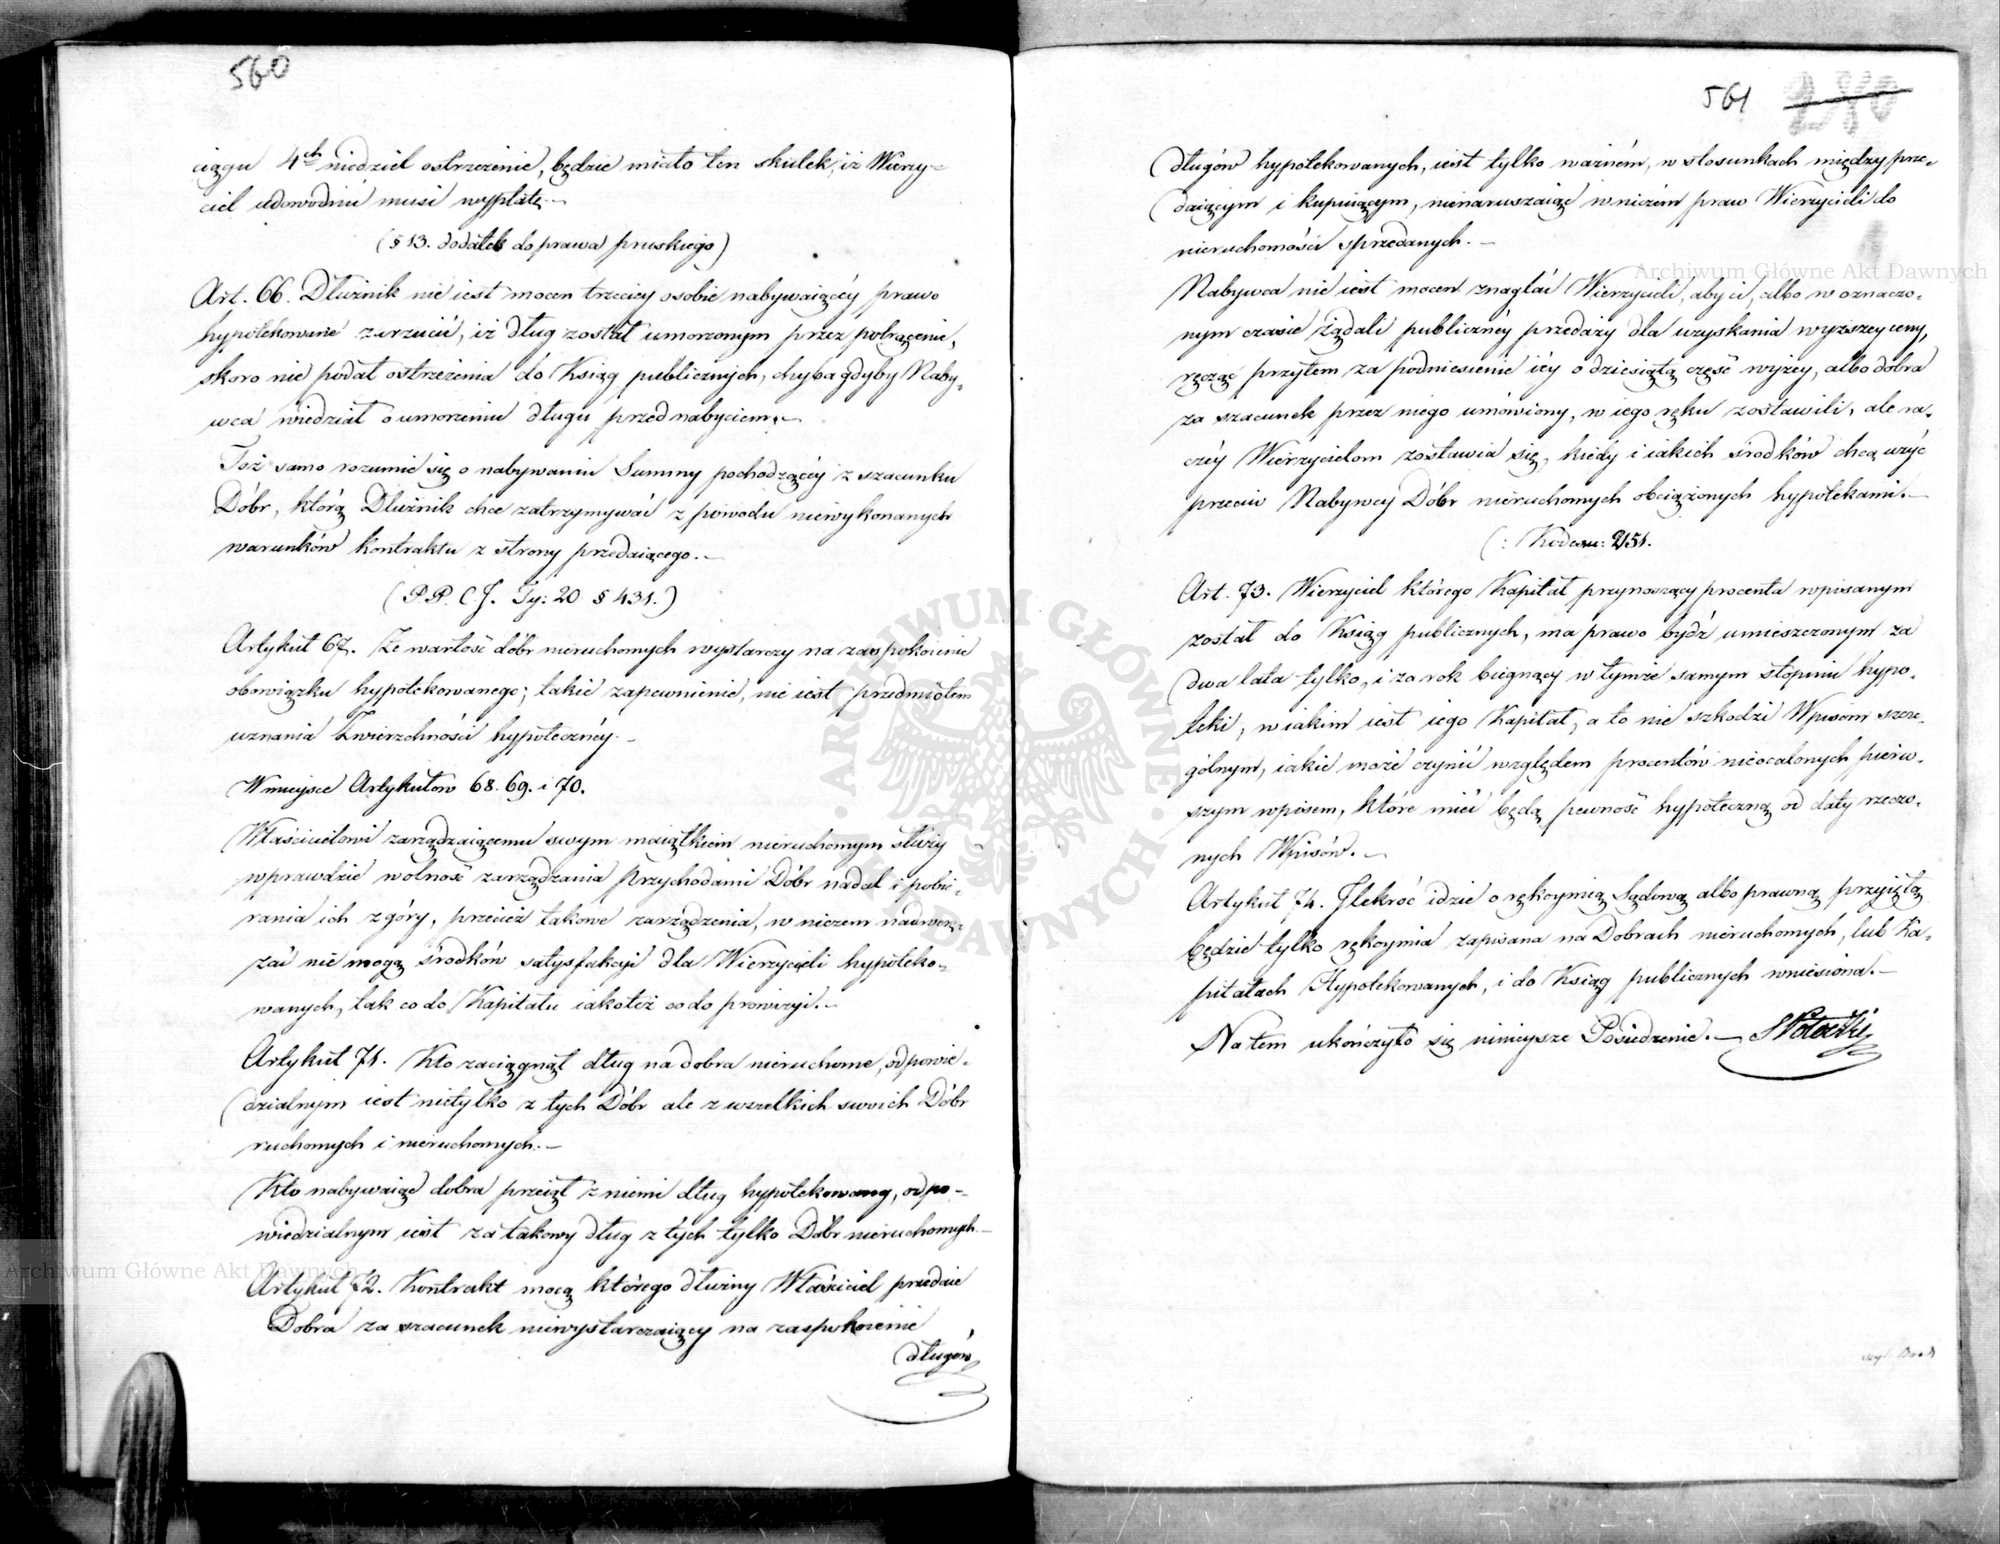 560
ciągu 4ch niedziel ostrzeżenie, będzie miało ten skutek, iż Wierzy-
ciel udowodnić musi wypłatę.—
(§ 13. dodatek do prawa pruskiego)
Art. 66. Dłużnik nie iest mocen trzeciey osobie nabywaiącéy prawo
hypotekowane zarzucić, iż dług został umorzonym przez potrącenie,
skoro nie podał ostrzeżenia do Ksiąg publicznych, chyba gdyby Naby-
wca wiedział o umorzeniu długu przed nabyciem.—
Toż samo rozumie się o nabywaniu Summy pochodzącéy z szacunku
Dóbr, którą Dłużnik chce zatrzymywać z powodu niewykonanych
warunków kontraktu z strony przedaiącego.—
(P. P. C. J. Ty: 20 § 431.)
Artykuł 67. Że wartość dóbr nieruchomych wystarczy na zaspokoienie
obowiązku hypotekowanego; takie zapewnienie, nie iest przedmiotem
uznania Zwierzchności hypotecznéy.—
W mieysce Artykułów 68. 69. i 70.
Właścicielowi zarządzaiącemu swym maiątkiem nieruchomym służy
wprawdzie wolność zarządzania Przychodami Dóbr nadal i pobie-
rania ich z góry, przecież takowe zarządzenia, w niczem nadwerę-
żać nie mogą środków satysfakcyi dla Wierzycieli hypoteko-
wanych, tak co do Kapitału iakoteż co do prowizyi.—
Artykuł 71. Kto zaciągnął dług na dobra nieruchome, odpowie-
dzialnym iest nietylko z tych Dóbr ale z wszelkich swoich Dóbr
ruchomych i nieruchomych.—
Kto nabywaiąc dobra przeiął z niemi dług hypotekowany, odpo-
wiedzialnym iest za takowy dług z tych tylko Dóbr nieruchomych.—
Artykuł 72. Kontrakt mocą którego dłużny Właściciel przedaie
Dobra za szacunek niewystarczaiący na zaspokoienie
długów
561 270
długów hypotekowanych, iest tylko ważném, w stosunkach między prze-
daiącym i kupuiącym, nienaruszaiąc w niczém praw Wierzycieli do
nieruchomości sprzedanych.—
Nabywca nie iest mocen znaglać Wierzycieli, aby ci, albo w oznaczo-
nym czasie żądali publicznéy przedaży dla uzyskania wyższey ceny,
ręcząc przytem za podniesienie iéy o dziesiątą część wyżey, albo dobra
za szacunek przez niego umówiony, w iego ręku zostawili, ale ra-
czéy Wierzycielom zostawia się, kiedy i iakich środków chcą użyć
przeciw Nabywcy Dóbr nieruchomych obciążonych hypotekami.—
(: Kodexu: 2151.
Art. 73. Wierzyciel którego Kapitał przynoszący procenta wpisanym
został do Ksiąg publicznych, ma prawo bydź umieszczonym za
dwa lata tylko, i za rok biegnący w tymże samym stopniu hypo-
teki, w iakim iest iego Kapitał, a to nie szkodzi Wpisom szcze-
gólnym, iakie może czynić względem procentów nieocalonych pierw-
szym wpisem, które mieć będą pewność hypoteczną od daty rzeczo-
nych Wpisów.—
Artykuł 74. Ilekroć idzie o rękoymią Sądową albo prawną, przyiętą
będzie tylko rękoymia zapisana na Dobrach nieruchomych, lub Ka-
pitałach Hypotekowanych, i do Ksiąg publicznych wniesiona.—
Na tem ukończyło się ninieysze Posiedzenie.— SPotocki
Archiwum Główne Akt Dawnych
Archiwum Główne Akt Dawnych
ARCHIWUM GŁÓWNE AKT DAWNYCH